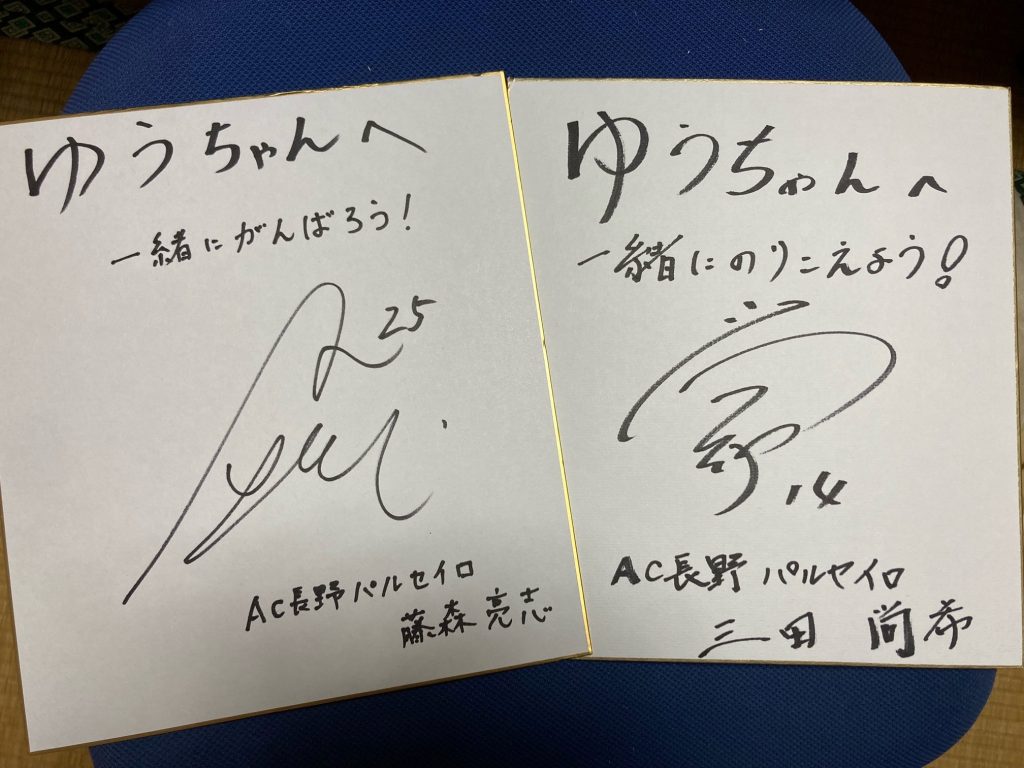 ゆうちゃんへ
一緒にがんばろう!
25
AC長野パルセイロ
藤森亮志
ゆうちゃんへ
一緒にのりこえよう!
14
AC長野パルセイロ
三田 尚希